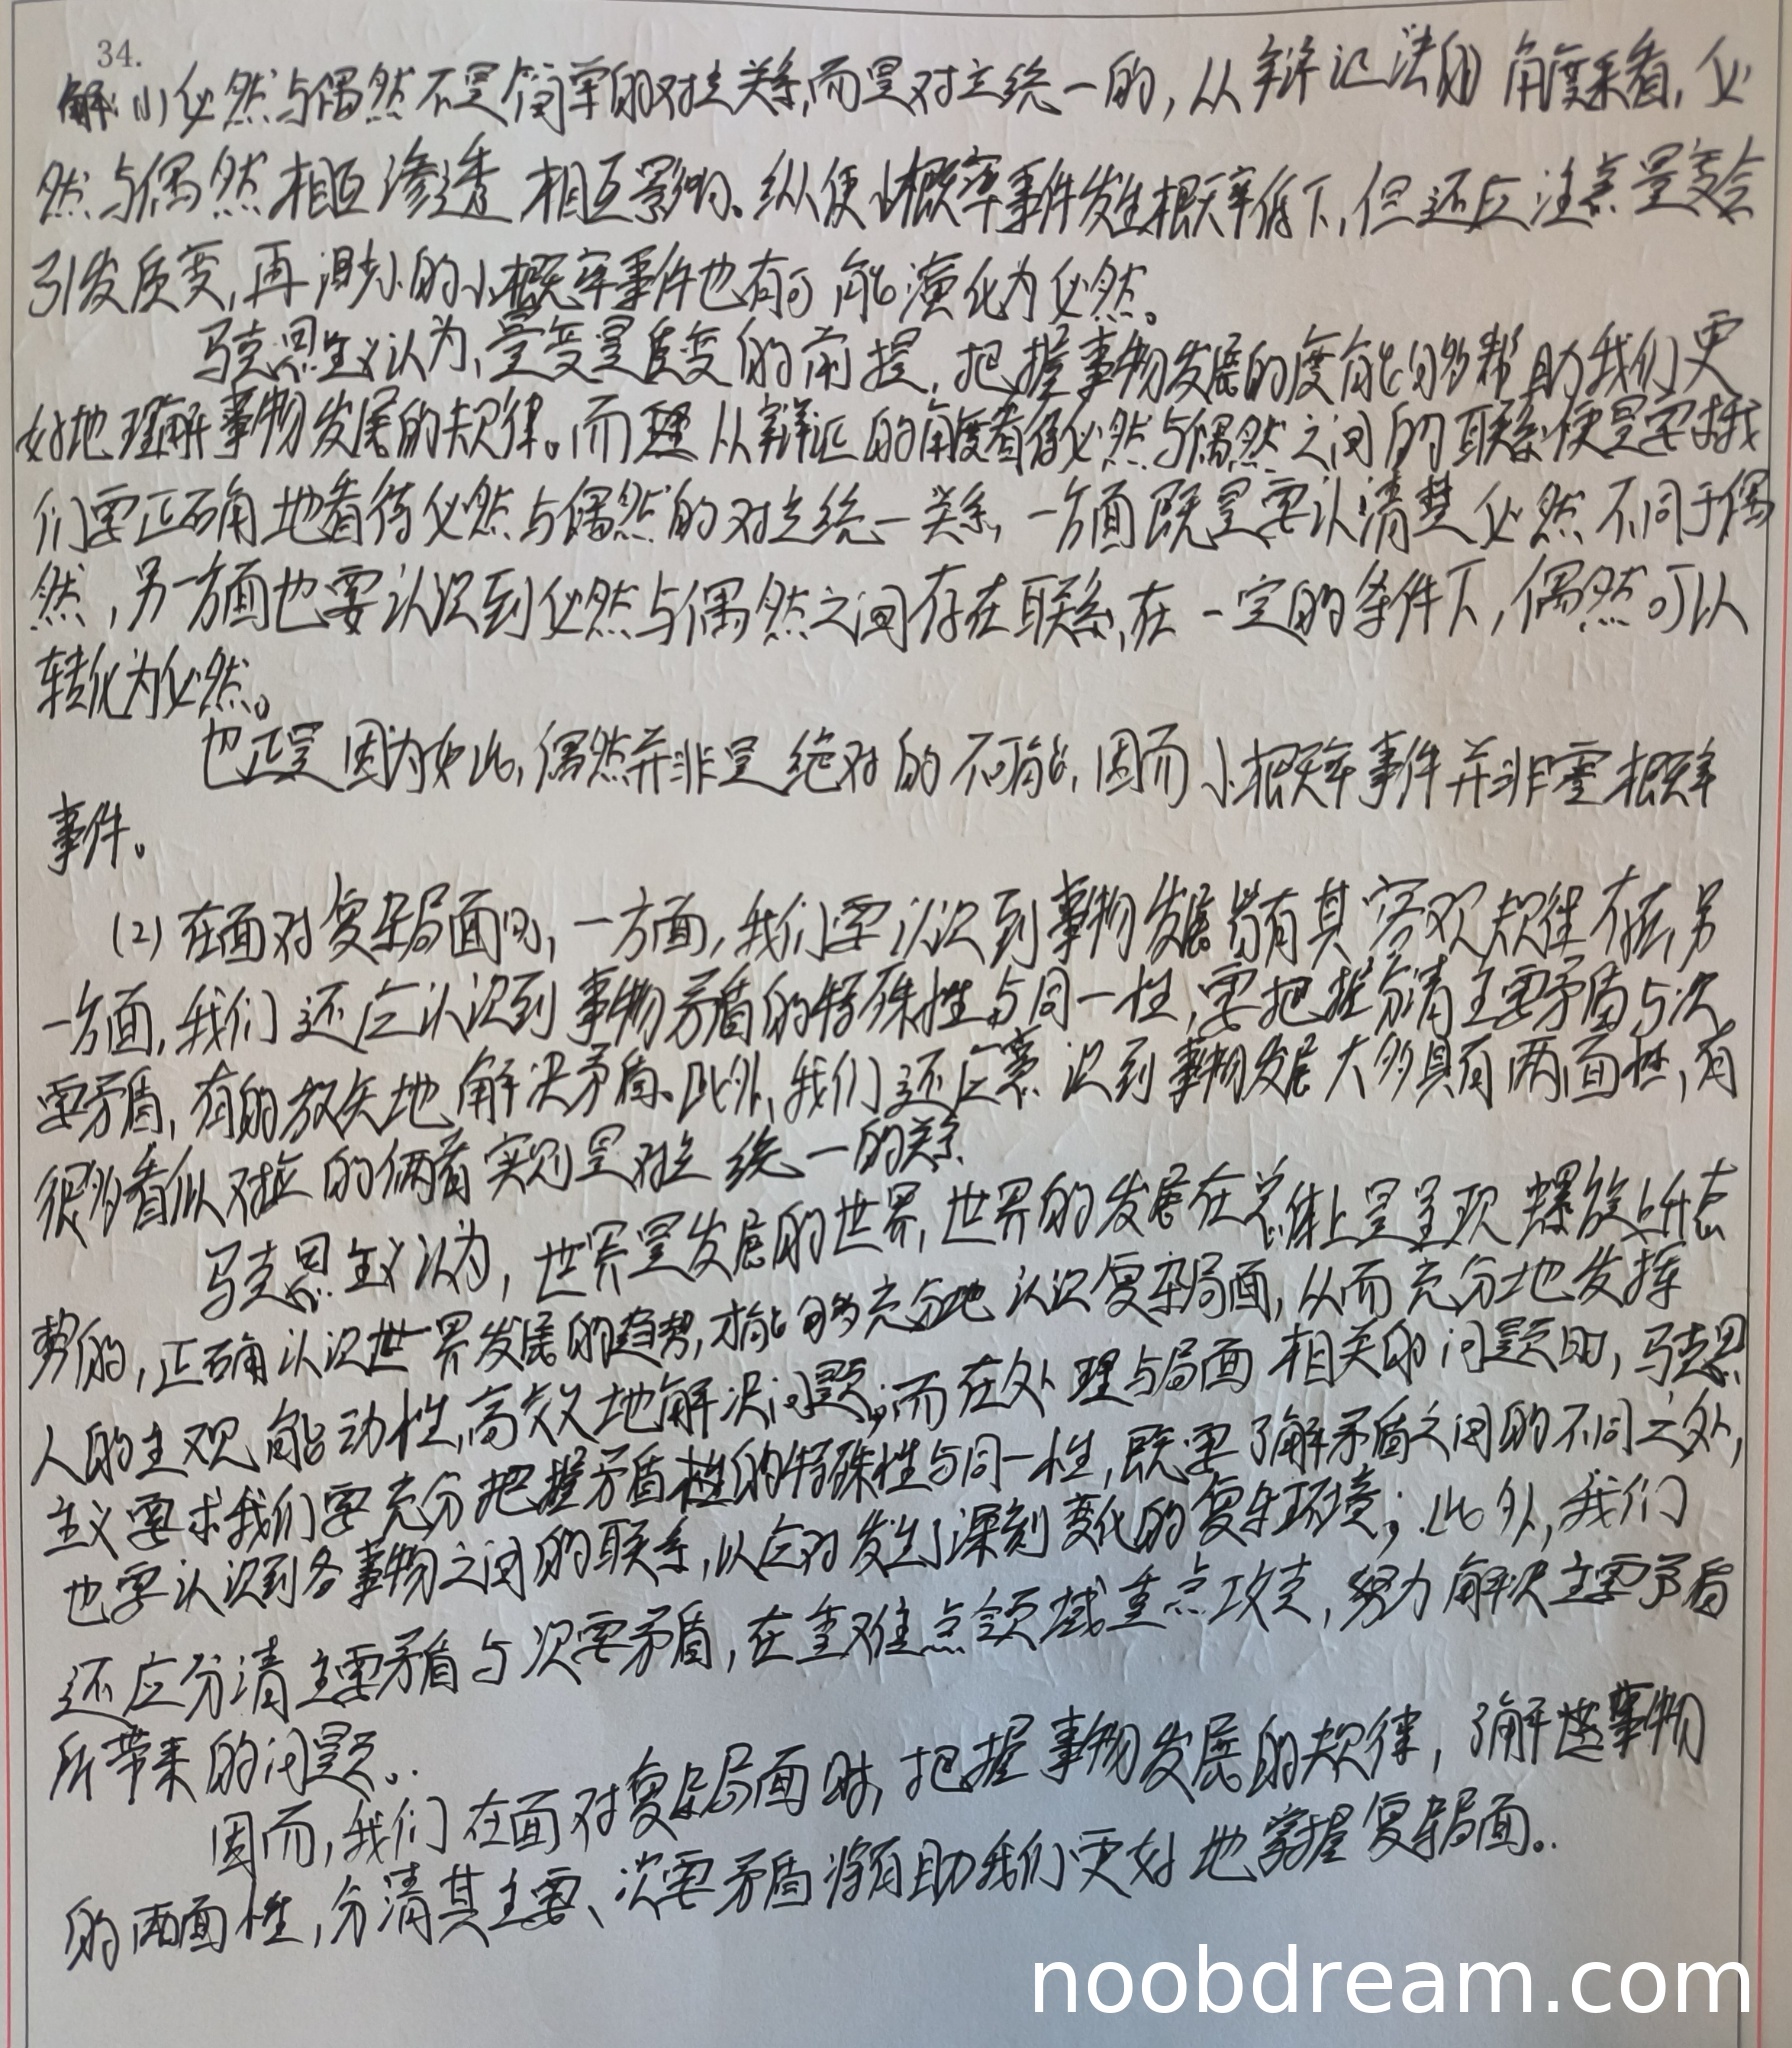 34.
解:(1)必然与偶然不是简单的对立关系,而是对立统一的,从辩证法的角度来看,必
然与偶然相互渗透相互影响。纵使小概率事件发生概率低下,但还应注意量变会
引发质变,再渺小的小概率事件也有可能演化为必然。
马克思主义认为,量变是质变的前提,把握事物发展的度能够帮助我们更
好地理解事物发展的规律。而从辩证的角度看待必然与偶然之间的联系便是要求我
们要正确地看待必然与偶然的对立统一关系,一方面既是要认清楚必然不同于偶
然,另一方面也要认识到必然与偶然之间存在联系,在一定的条件下,偶然可以
转化为必然。
也正是因为如此,偶然并非是绝对的不可能,因而小概率事件并非零概率
事件。
(2)在面对复杂局面时,一方面,我们要认识到事物发展皆有其客观规律存在,另
一方面,我们还应认识到事物矛盾的特殊性与同一性,要把握分清主要矛盾与次
要矛盾,有的放矢地解决矛盾。此外,我们还应意识到事物发展大多具有两面性,有
很多看似对立的俩者实则是对立统一的关系
马克思主义认为,世界是发展的世界,世界的发展在总体上是呈现螺旋上升态
势的,正确认识世界发展的趋势,才能够充分地认识复杂局面,从而充分地发挥
人的主观能动性,高效地解决问题;而在处理与局面相关的问题时,马克思
主义要求我们要充分把握矛盾的特殊性与同一性,既要了解矛盾之间的不同之处,
也要认识到各事物之间的联系,以应对发生了深刻变化的复杂环境;此外,我们
还应分清主要矛盾与次要矛盾,在重难点领域重点攻克,努力解决主要矛盾
所带来的问题。
因而,我们在面对复杂局面时,把握事物发展的规律,了解事物
的两面性,分清其主要、次要矛盾将有助我们更好地掌握复杂局面。
noobdream.com